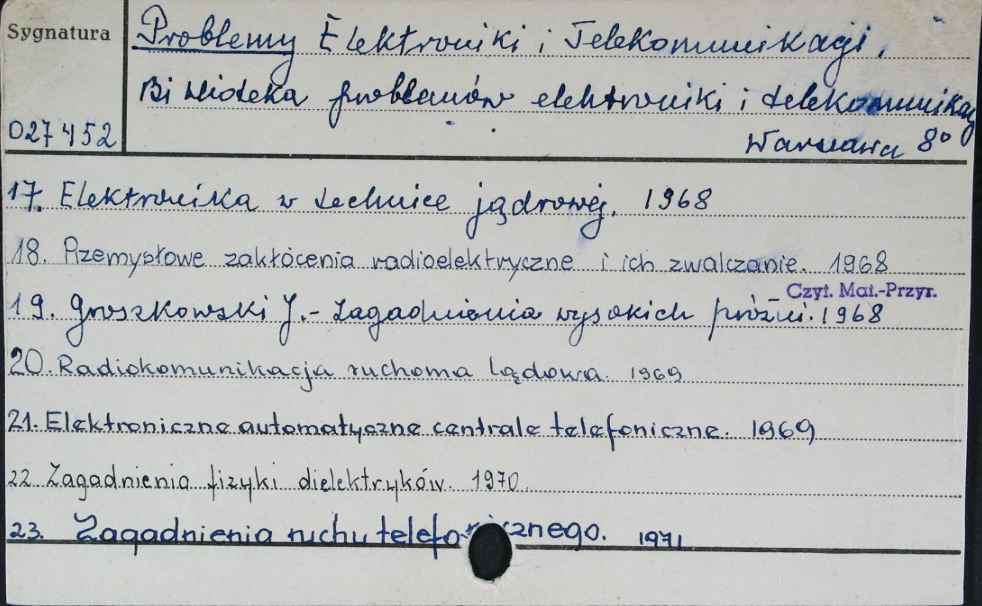 Sygnatura
Problemy Elektroniki i Telekomunikacji.
Biblioteka problemów elektroniki i telekomunikacj
027452
Warszawa 8°
17. Elektronika w technice jądrowej. 1968
18. Przemysłowe zakłócenia radioelektryczne i ich zwalczanie. 1968
Czyt. Mat.-Przyr.
19. Groszkowski J.- Zagadnienia wysokich próżni. 1968
20. Radiokomunikacja ruchoma lądowa. 1969
21. Elektroniczne automatyczne centrale telefoniczne. 1969
22 Zagadnienia fizyki dielektryków. 1970.
23. Zagadnienia ruchu telefonicznego. 1971